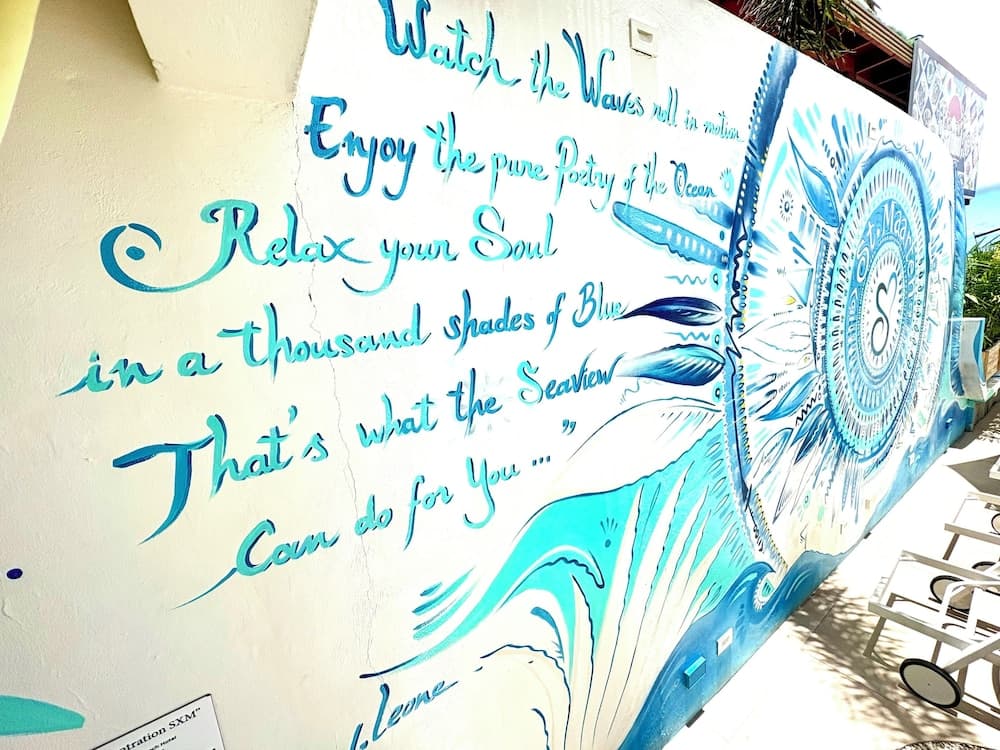 Watch the Waves roll in motion
Enjoy the pure Poetry of the Ocean
Relax your Soul
in a thousand shades of Blue
That's what the Seaview
Can do for You ... "
Leone
St. Maa
ntration SXM"
Hotel